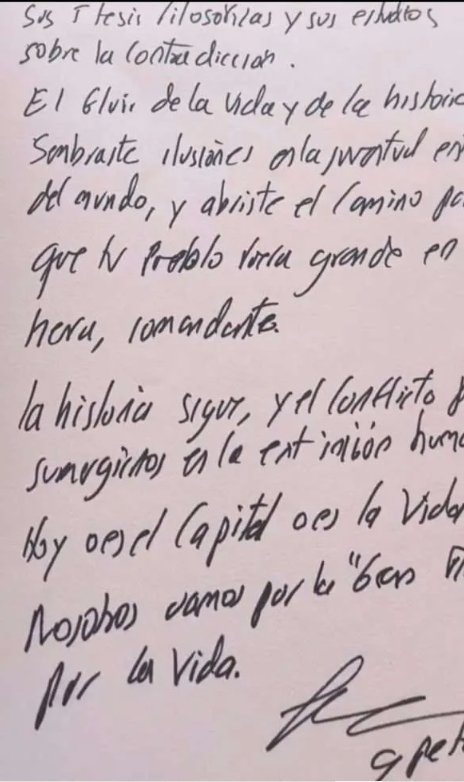 Sus Tesis filosoficas y sus estudios
sobre la Contradiccion.
El Eluir de la vida y de la historia
Sembraste ilusiones en la juventud en
del mundo, y abriste el Camino pa
que tu Pueblo fuera grande en
hora, comandante.
la historia sigue, y el Conflicto p
sumergirnos en la extinción huma
Hoy o es el Capital o es la Vida
Nosotros vamos por la "Gran
por la Vida.
G Pet